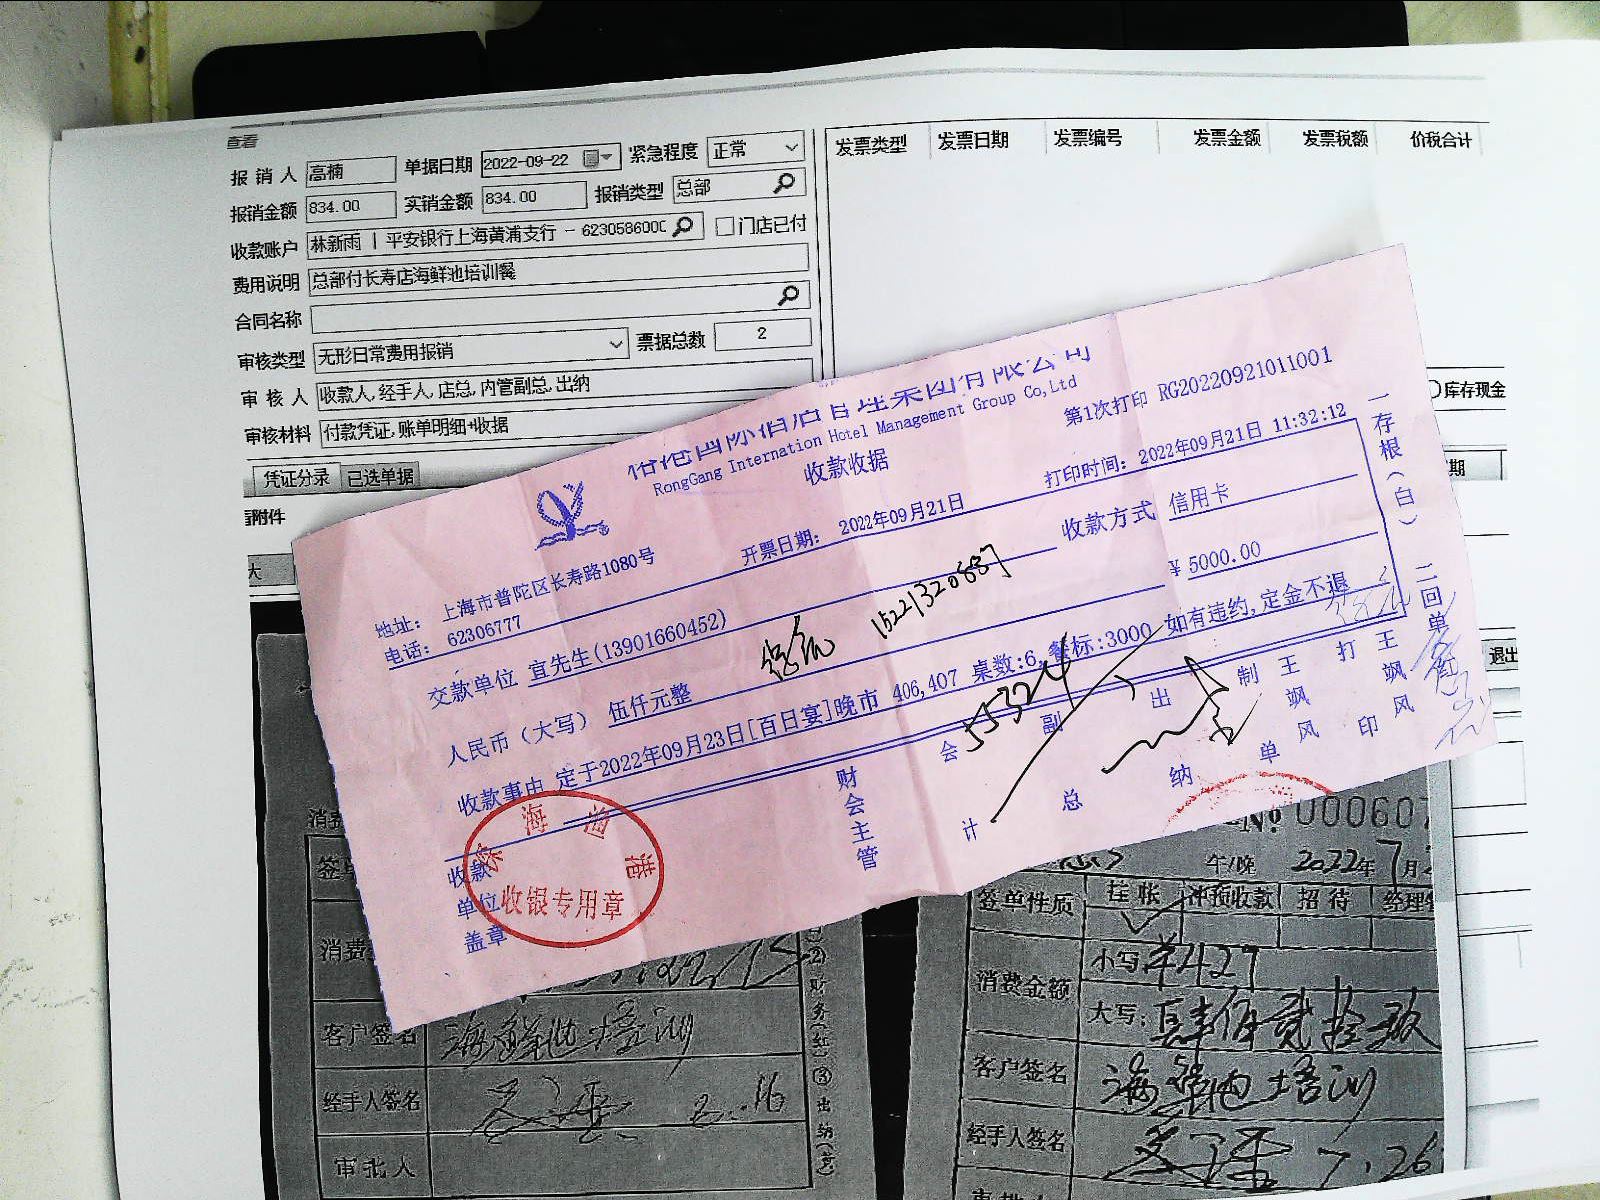 查看
报销人 高楠 单据日期 2022-09-22 紧急程度 正常
报销金额 834.00 实销金额 834.00 报销类型 总部
收款账户 林新雨 | 平安银行上海黄浦支行 - 623058600 门店已付
费用说明 总部付长寿店海鲜池培训餐
合同名称
审核类型 无形日常费用报销 票据总数 2
审核人 收款人,经手人,店总,内管副总,出纳
审核材料 付款凭证,账单明细+收据
凭证分录 已选单据
附件
大
发票类型 发票日期 发票编号 发票金额 发票税额 价税合计
库存现金
期
退出
RongGang Internation Hotel Management Group Co,Ltd
收款收据
第1次打印 RG20220921011001
地址: 上海市普陀区长寿路1080号 开票日期: 2022年09月21日 打印时间: 2022年09月21日 11:32:12
电话: 62306777
交款单位 宜先生(13901660452) 收款方式 信用卡
15221320887
人民币(大写) 伍仟元整 ¥ 5000.00
收款事由 定于2022年09月23日[百日宴]晚市 406,407 桌数:6,餐标:3000 如有违约,定金不退
55324
收款单位盖章
财会主管
会计
副总
出纳
制单
王飒风
打印
王飒风
一存根(白) 二回单(红)
海
港
收银专用章
消费
签单
消费
客户签名 海鲜池培训
经手人签名
审批人
(2)财务(红)(3)出纳(黄)
№ 000607
午/晚 2022年7月2
签单性质 挂帐 冲预收款 招待 经理
消费金额 小写 ¥429
大写: 肆佰贰拾玖
客户签名 海鲜池培训
经手人签名 7.26
审批人